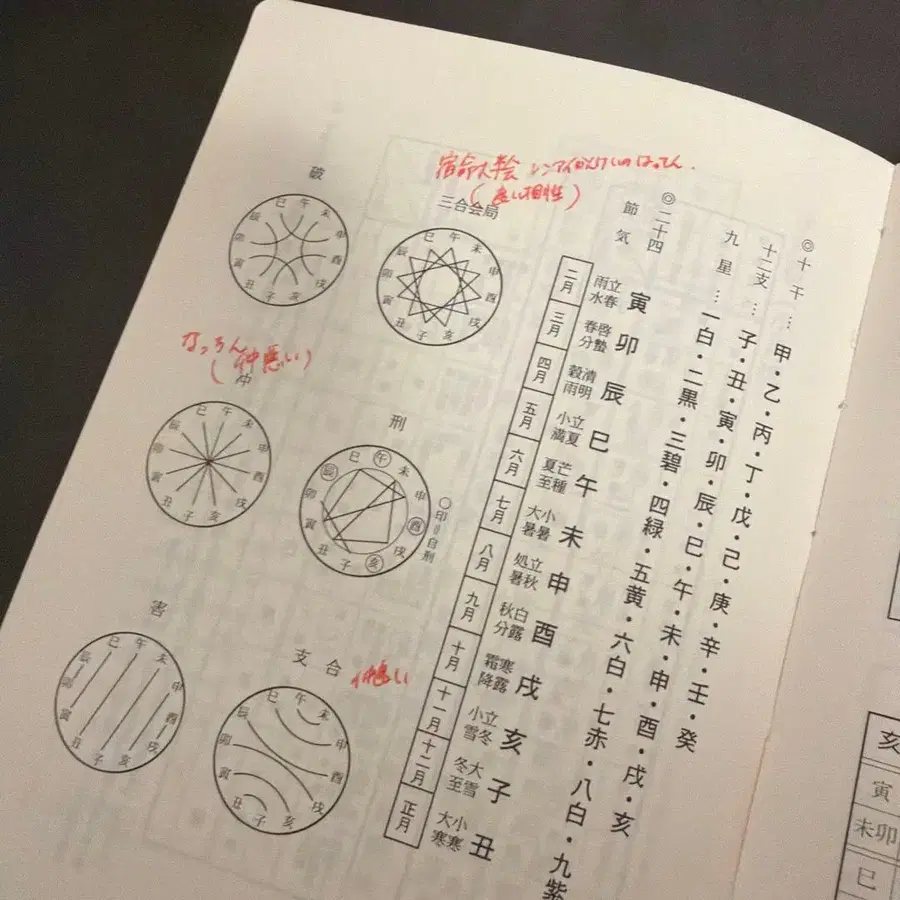 ◎十干…甲・乙・丙・丁・戊・己・庚・辛・壬・癸
十二支…子・丑・寅・卯・辰・巳・午・未・申・酉・戌・亥
九星…一白・二黒・三碧・四緑・五黄・六白・七赤・八白・九紫
◎二十四節気
寅 立春 雨水 二月
卯 啓蟄 春分 三月
辰 清明 穀雨 四月
巳 立夏 小満 五月
午 芒種 夏至 六月
未 小暑 大暑 七月
申 立秋 処暑 八月
酉 白露 秋分 九月
戌 寒露 霜降 十月
亥 立冬 小雪 十一月
子 大雪 冬至 十二月
丑 小寒 大寒 正月
宿命大半会 レンアイかんけいのはってん
(良い相性)
三合会局
巳 午 未 申 酉 戌 亥 子 丑 寅 卯 辰
刑
巳 午 未 申 酉 戌 亥 子 丑 寅 卯 辰
○印=自刑
支合
巳 午 未 申 酉 戌 亥 子 丑 寅 卯 辰
破
巳 午 未 申 酉 戌 亥 子 丑 寅 卯 辰
(仲悪い)
冲
巳 午 未 申 酉 戌 亥 子 丑 寅 卯 辰
害
巳 午 未 申 酉 戌 亥 子 丑 寅 卯 辰
亥
寅
未卯
巳